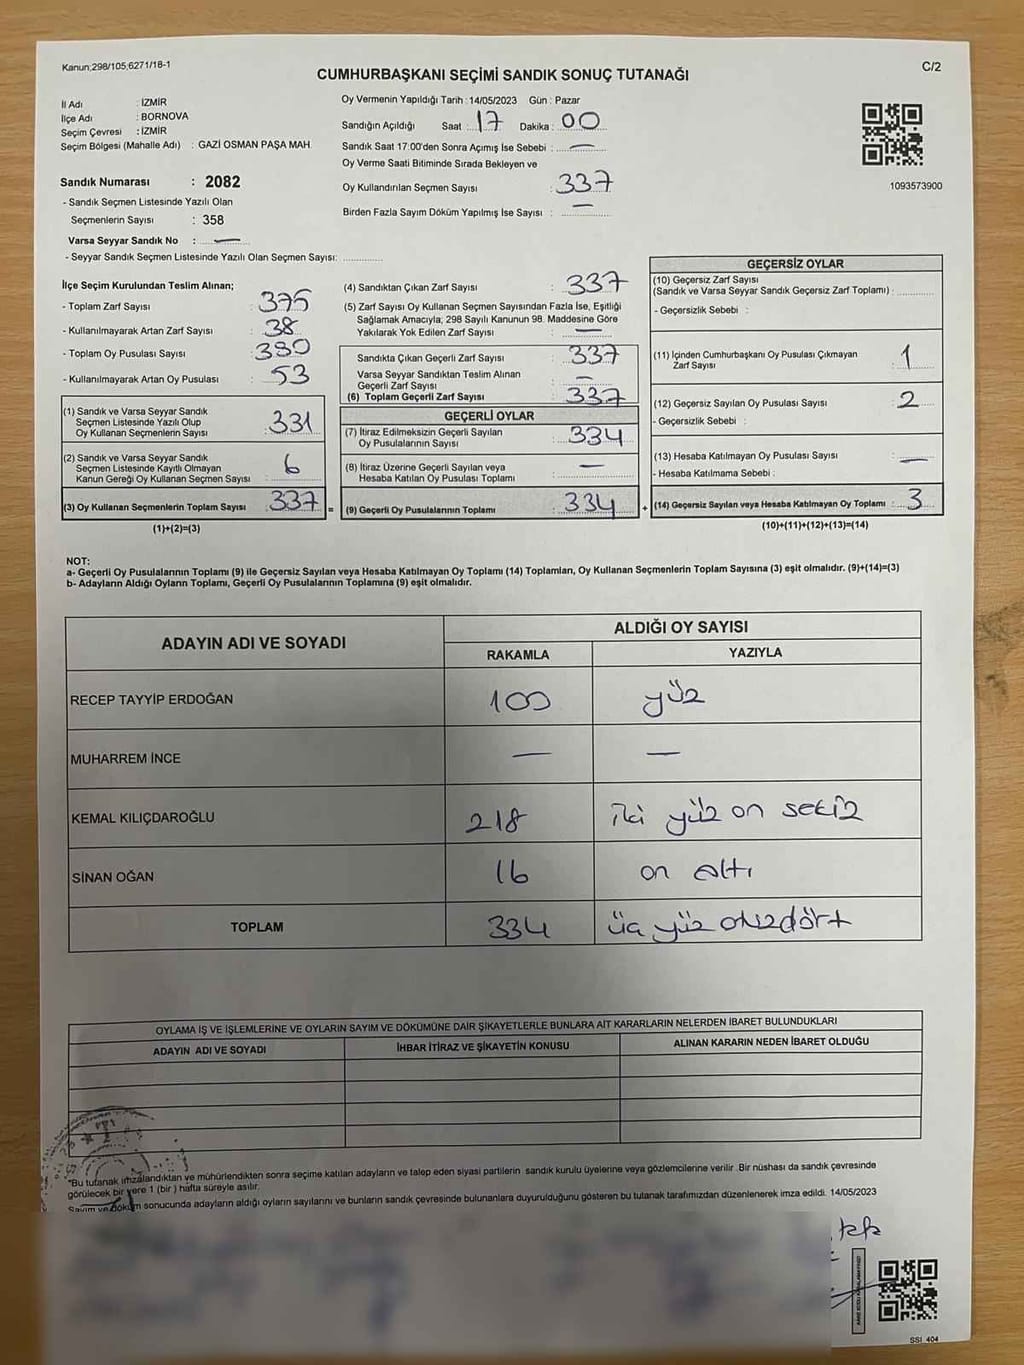 Kanun;298/105;6271/18-1
C/2
CUMHURBAŞKANI SEÇİMİ SANDIK SONUÇ TUTANAĞI
İl Adı : İZMİR
İlçe Adı : BORNOVA
Seçim Çevresi : İZMİR
Seçim Bölgesi (Mahalle Adı) : GAZİ OSMAN PAŞA MAH.
Oy Vermenin Yapıldığı Tarih : 14/05/2023 Gün : Pazar
Sandığın Açıldığı Saat : 17 Dakika : 00
Sandık Saat 17:00'den Sonra Açımış İse Sebebi : —
Oy Verme Saati Bitiminde Sırada Bekleyen ve
Oy Kullandırılan Seçmen Sayısı : 337
Birden Fazla Sayım Döküm Yapılmış İse Sayısı : —
1093573900
Sandık Numarası : 2082
- Sandık Seçmen Listesinde Yazılı Olan
Seçmenlerin Sayısı : 358
Varsa Seyyar Sandık No : —
- Seyyar Sandık Seçmen Listesinde Yazılı Olan Seçmen Sayısı:
İlçe Seçim Kurulundan Teslim Alınan;
- Toplam Zarf Sayısı : 375
- Kullanılmayarak Artan Zarf Sayısı : 38
- Toplam Oy Pusulası Sayısı : 390
- Kullanılmayarak Artan Oy Pusulası : 53
(1) Sandık ve Varsa Seyyar Sandık
Seçmen Listesinde Yazılı Olup
Oy Kullanan Seçmenlerin Sayısı : 331
(2) Sandık ve Varsa Seyyar Sandık
Seçmen Listesinde Kayıtlı Olmayan
Kanun Gereği Oy Kullanan Seçmen Sayısı : 6
(3) Oy Kullanan Seçmenlerin Toplam Sayısı : 337
(1)+(2)=(3)
=
(4) Sandıktan Çıkan Zarf Sayısı : 337
(5) Zarf Sayısı Oy Kullanan Seçmen Sayısından Fazla İse, Eşitliği
Sağlamak Amacıyla; 298 Sayılı Kanunun 98. Maddesine Göre
Yakılarak Yok Edilen Zarf Sayısı : —
Sandıkta Çıkan Geçerli Zarf Sayısı : 337
Varsa Seyyar Sandıktan Teslim Alınan
Geçerli Zarf Sayısı : —
(6) Toplam Geçerli Zarf Sayısı : 337
GEÇERLİ OYLAR
(7) İtiraz Edilmeksizin Geçerli Sayılan
Oy Pusulalarının Sayısı : 334
(8) İtiraz Üzerine Geçerli Sayılan veya
Hesaba Katılan Oy Pusulası Toplamı : —
(9) Geçerli Oy Pusulalarının Toplamı : 334
+
GEÇERSİZ OYLAR
(10) Geçersiz Zarf Sayısı
(Sandık ve Varsa Seyyar Sandık Geçersiz Zarf Toplamı) :
- Geçersizlik Sebebi :
(11) İçinden Cumhurbaşkanı Oy Pusulası Çıkmayan
Zarf Sayısı : 1
(12) Geçersiz Sayılan Oy Pusulası Sayısı : 2
- Geçersizlik Sebebi :
(13) Hesaba Katılmayan Oy Pusulası Sayısı : —
- Hesaba Katılmama Sebebi :
(14) Geçersiz Sayılan veya Hesaba Katılmayan Oy Toplamı : 3
(10)+(11)+(12)+(13)=(14)
NOT:
a- Geçerli Oy Pusulalarının Toplamı (9) ile Geçersiz Sayılan veya Hesaba Katılmayan Oy Toplamı (14) Toplamları, Oy Kullanan Seçmenlerin Toplam Sayısına (3) eşit olmalıdır. (9)+(14)=(3)
b- Adayların Aldığı Oyların Toplamı, Geçerli Oy Pusulalarının Toplamına (9) eşit olmalıdır.
ADAYIN ADI VE SOYADI
ALDIĞI OY SAYISI
RAKAMLA YAZIYLA
RECEP TAYYİP ERDOĞAN 100 yüz
MUHARREM İNCE — —
KEMAL KILIÇDAROĞLU 218 iki yüz on sekiz
SİNAN OĞAN 16 on altı
TOPLAM 334 üç yüz otuzdört
OYLAMA İŞ VE İŞLEMLERİNE VE OYLARIN SAYIM VE DÖKÜMÜNE DAİR ŞİKAYETLERLE BUNLARA AİT KARARLARIN NELERDEN İBARET BULUNDUKLARI
ADAYIN ADI VE SOYADI İHBAR İTİRAZ VE ŞİKAYETİN KONUSU ALINAN KARARIN NEDEN İBARET OLDUĞU
*Bu tutanak imzalandıktan ve mühürlendikten sonra seçime katılan adayların ve talep eden siyasi partilerin sandık kurulu üyelerine veya gözlemcilerine verilir .Bir nüshası da sandık çevresinde
görülecek bir yere 1 (bir ) hafta süreyle asılır.
Sayım ve döküm sonucunda adayların aldığı oyların sayılarını ve bunların sandık çevresinde bulunanlara duyurulduğunu gösteren bu tutanak tarafımızdan düzenlenerek imza edildi. 14/05/2023
SSI_404